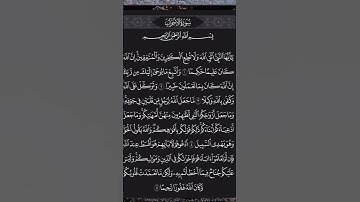 سُورَةُ الأَحْزَابِ
بِسْمِ اللَّهِ الرَّحْمَٰنِ الرَّحِيمِ
يَا أَيُّهَا النَّبِيُّ اتَّقِ اللَّهَ وَلَا تُطِعِ الْكَافِرِينَ وَالْمُنَافِقِينَ إِنَّ اللَّهَ
كَانَ عَلِيمًا حَكِيمًا ١ وَاتَّبِعْ مَا يُوحَىٰ إِلَيْكَ مِن رَّبِّكَ
إِنَّ اللَّهَ كَانَ بِمَا تَعْمَلُونَ خَبِيرًا ٢ وَتَوَكَّلْ عَلَى
اللَّهِ وَكَفَىٰ بِاللَّهِ وَكِيلًا ٣ مَّا جَعَلَ اللَّهُ لِرَجُلٍ مِّن قَلْبَيْنِ فِي جَوْفِهِ
وَمَا جَعَلَ أَزْوَاجَكُمُ اللَّائِي تُظَاهِرُونَ مِنْهُنَّ أُمَّهَاتِكُمْ وَمَا جَعَلَ
أَدْعِيَاءَكُمْ أَبْنَاءَكُمْ ذَٰلِكُمْ قَوْلُكُم بِأَفْوَاهِكُمْ وَاللَّهُ يَقُولُ الْحَقَّ
وَهُوَ يَهْدِي السَّبِيلَ ٤ ادْعُوهُمْ لِآبَائِهِمْ هُوَ أَقْسَطُ عِندَ اللَّهِ
فَإِن لَّمْ تَعْلَمُوا آبَاءَهُمْ فَإِخْوَانُكُمْ فِي الدِّينِ وَمَوَالِيكُمْ وَلَيْسَ
عَلَيْكُمْ جُنَاحٌ فِيمَا أَخْطَأْتُم بِهِ وَلَٰكِن مَّا تَعَمَّدَتْ قُلُوبُكُمْ
وَكَانَ اللَّهُ غَفُورًا رَّحِيمًا ٥